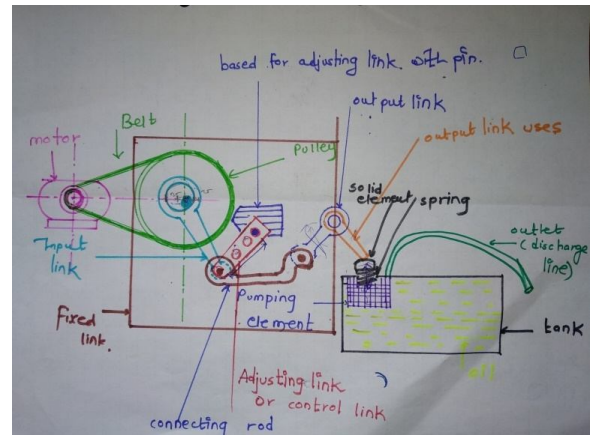 based for adjusting link with pin.
output link
Belt
motor
output link uses
pulley
solid
element
spring
outlet
(discharge
line)
Input
link
Pumping
element
fixed
link.
tank
oil
Adjusting link
or control link
connecting rod